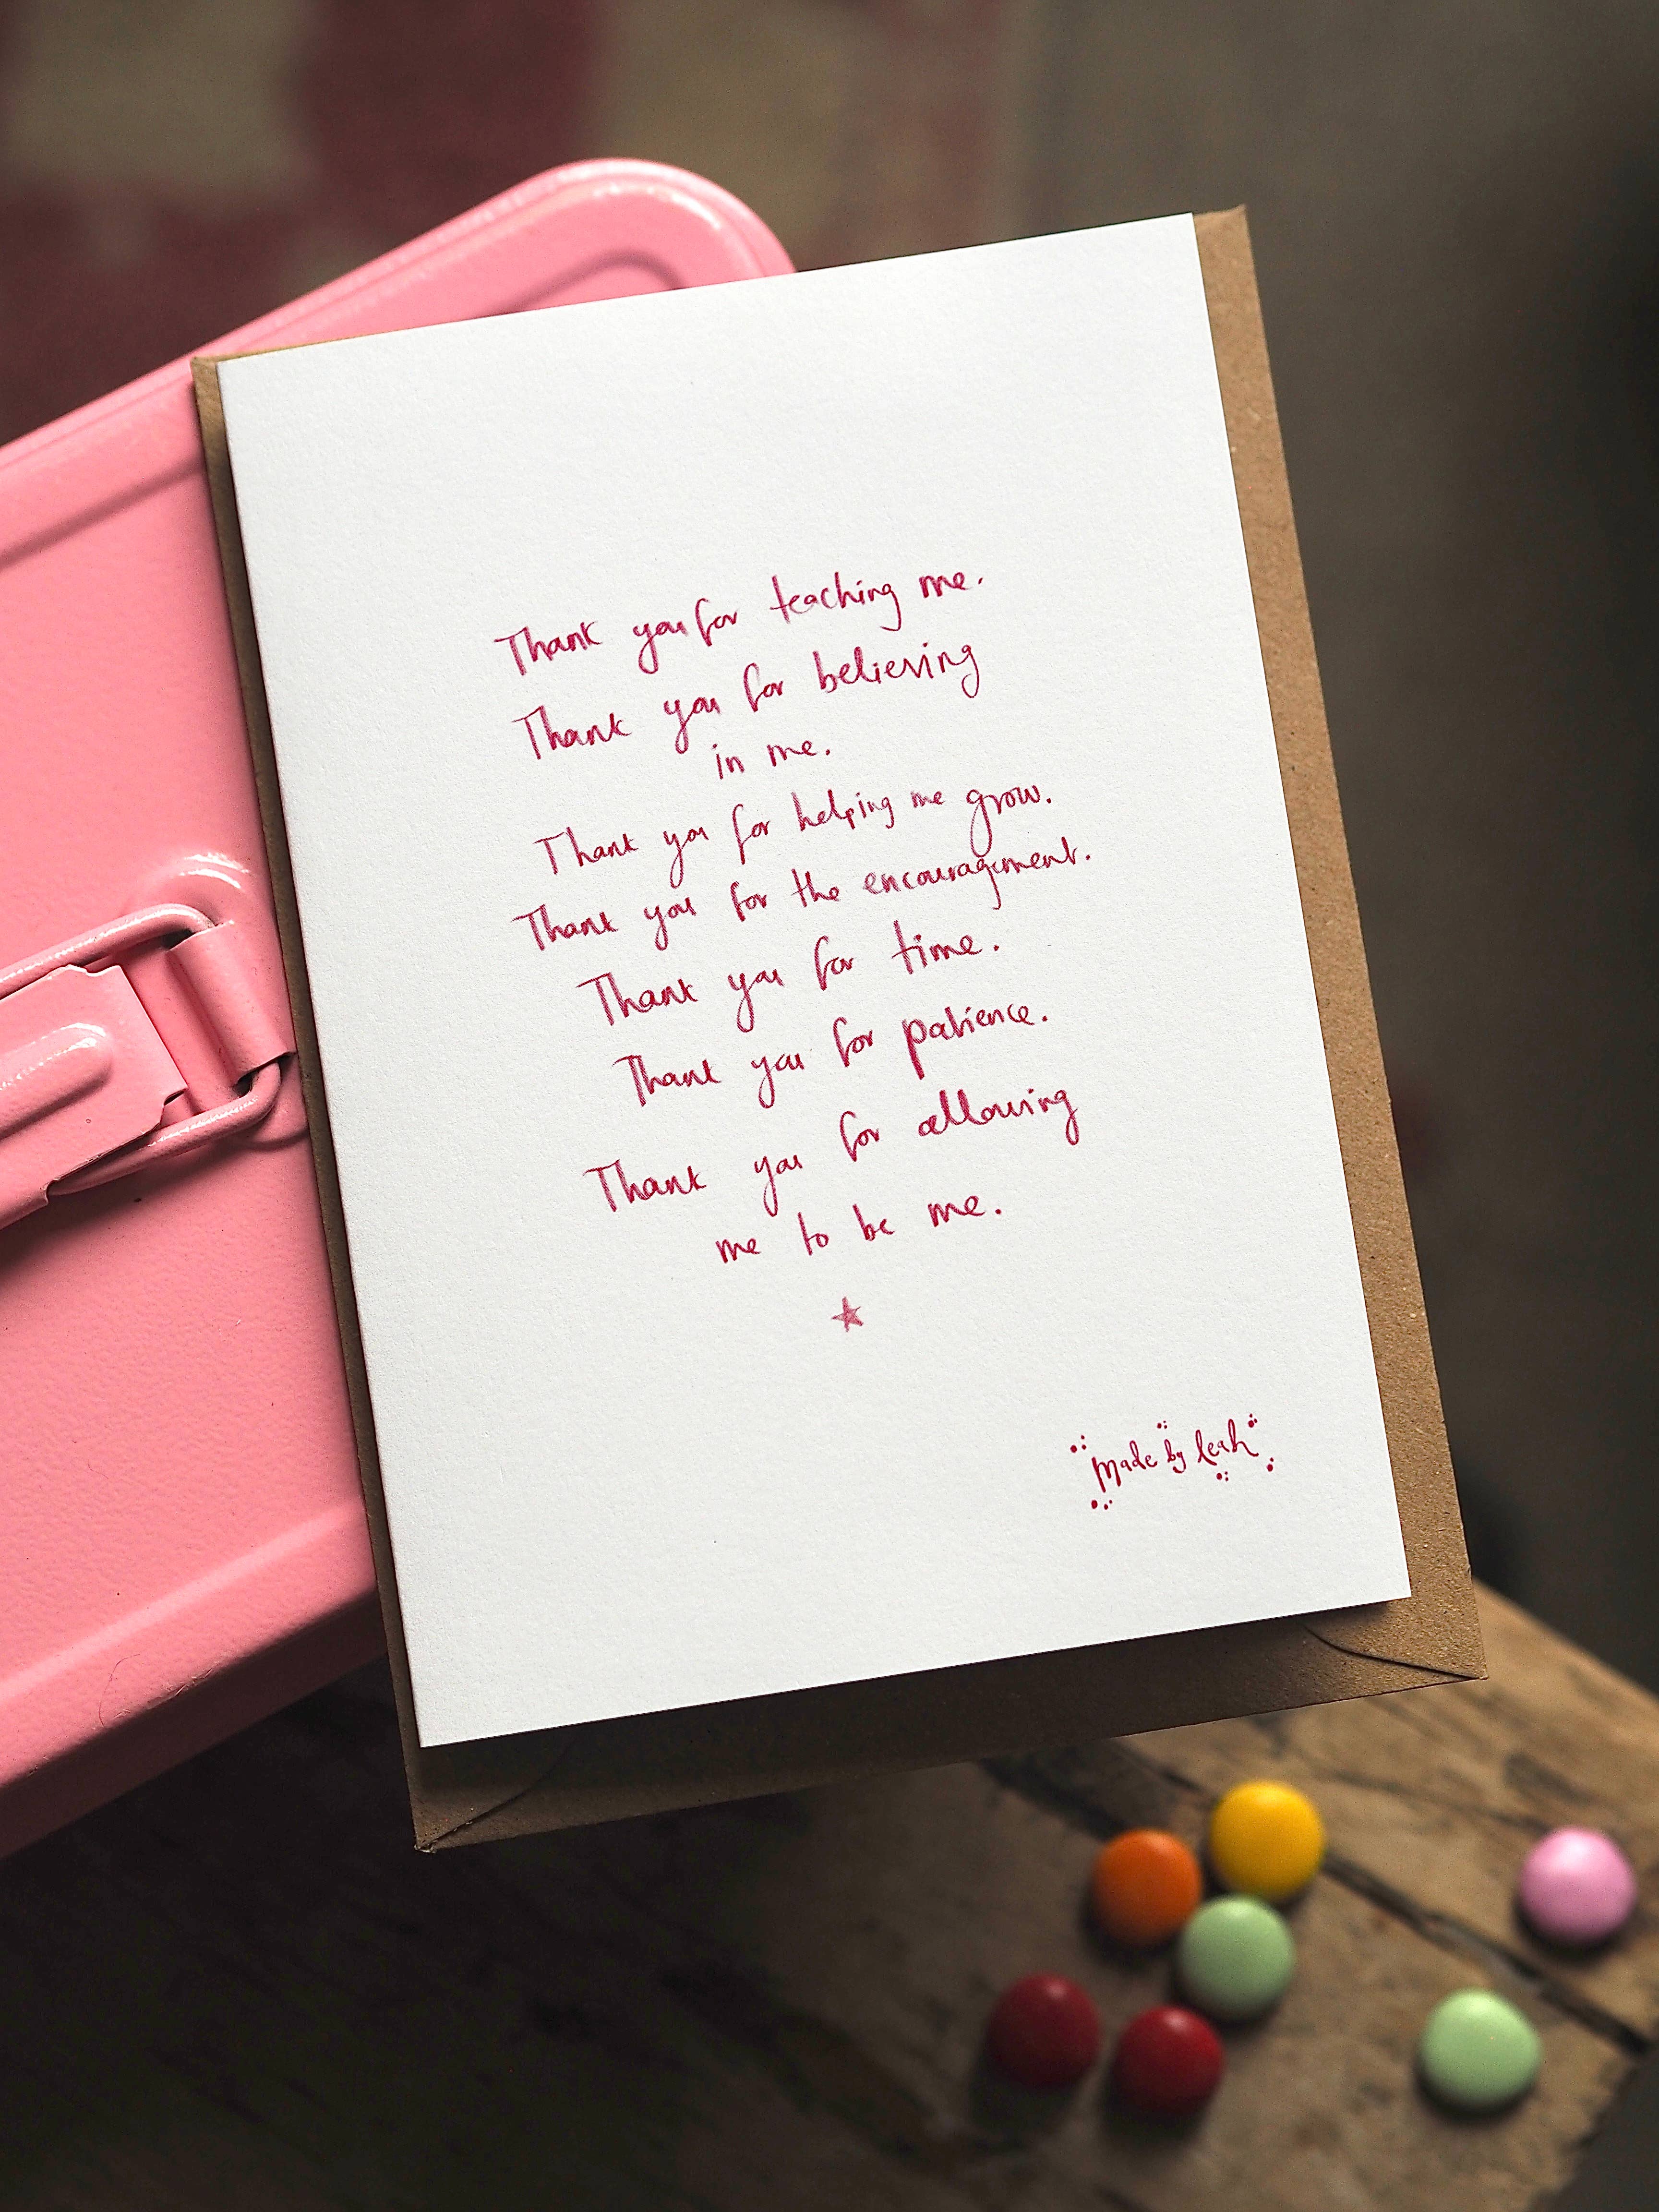 Thank you for teaching me.
Thank you for believing
in me.
Thank you for helping me grow.
Thank you for the encouragement.
Thank you for time.
Thank you for patience.
Thank you for allowing
me to be me.
Made by Leah